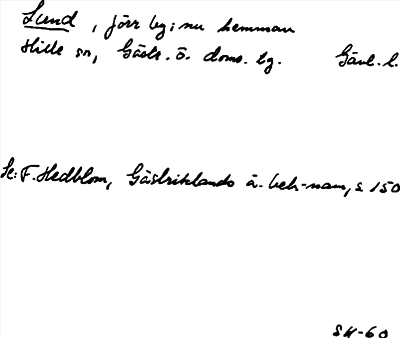 Lund, förr by; nu hemman
Hille sn, Gästr. ö. doms. tg. Gävl. l.
Se: F. Hedblom, Gästriklands ä. beb-namn, s 150
SH-60